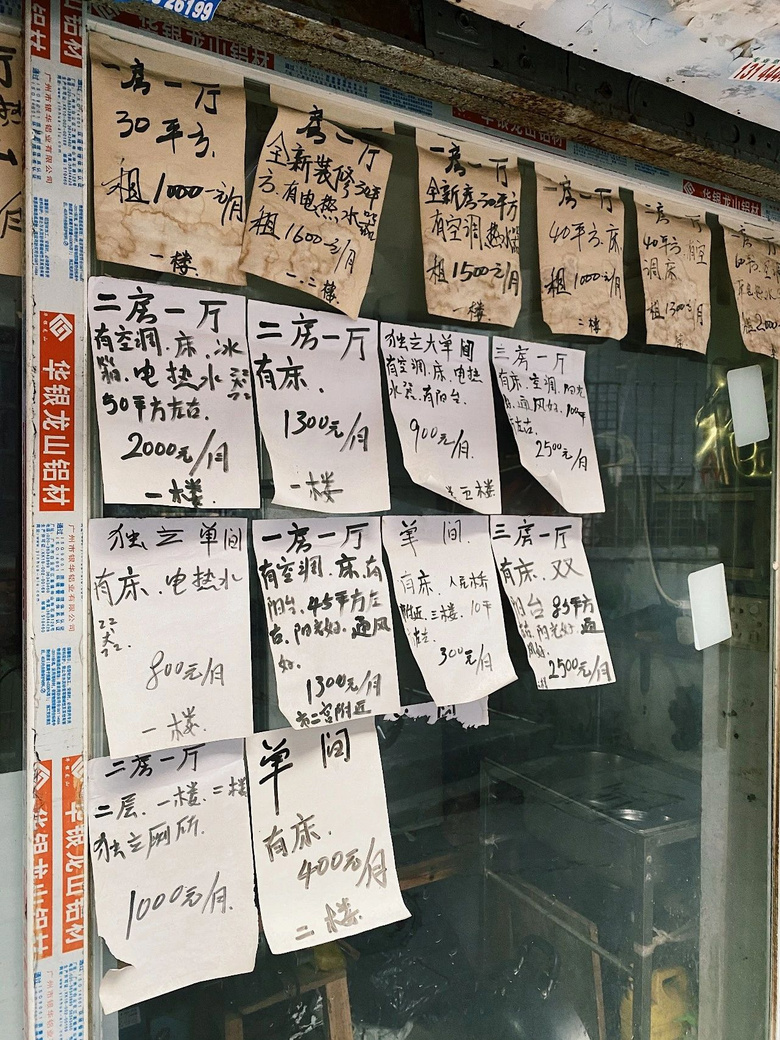 26199
华银龙山铝材
13144
一房一厅
30平方,
租1000元/月
一楼.
房一厅
全新装修30平
方.有电热水器
租1600元/月
一.二楼
一房一厅
全新房30平方
有空调.热水器
租1500元/月
一楼
一房一厅
40平方.床
租1000元/月
二楼
房一厅
40平方.有空
调床.
租1300元/月
二房一厅
有空调.床.冰
箱.电热水器
50平方左右.
2000元/月
一楼
二房一厅
有床.
1300元/月
一楼
独立大单间
有空调.床.电热
水器.有阳台.
900元/月.
五楼
三房一厅
有床.空调.阳光
好.通风好.100平
左右.
2500元/月
独立单间
有床.电热水
器
800元/月
一楼.
一房一厅
有空调.床.有
阳台.45平方左
右.阳光好.通风
好.
1300元/月
市二宫附近
单间.
有床.人民桥
附近.三楼.10平
左右.
300元/月
三房一厅
有床.双
阳台85平方
右.阳光好.通
风好.
2500元/月
二房一厅
二层.一楼.二楼
独立网所.
1000元/月.
单间
有床.
400元/月
二楼
华银龙山铝材
广州市银华铝业有限公司
华银龙山铝材